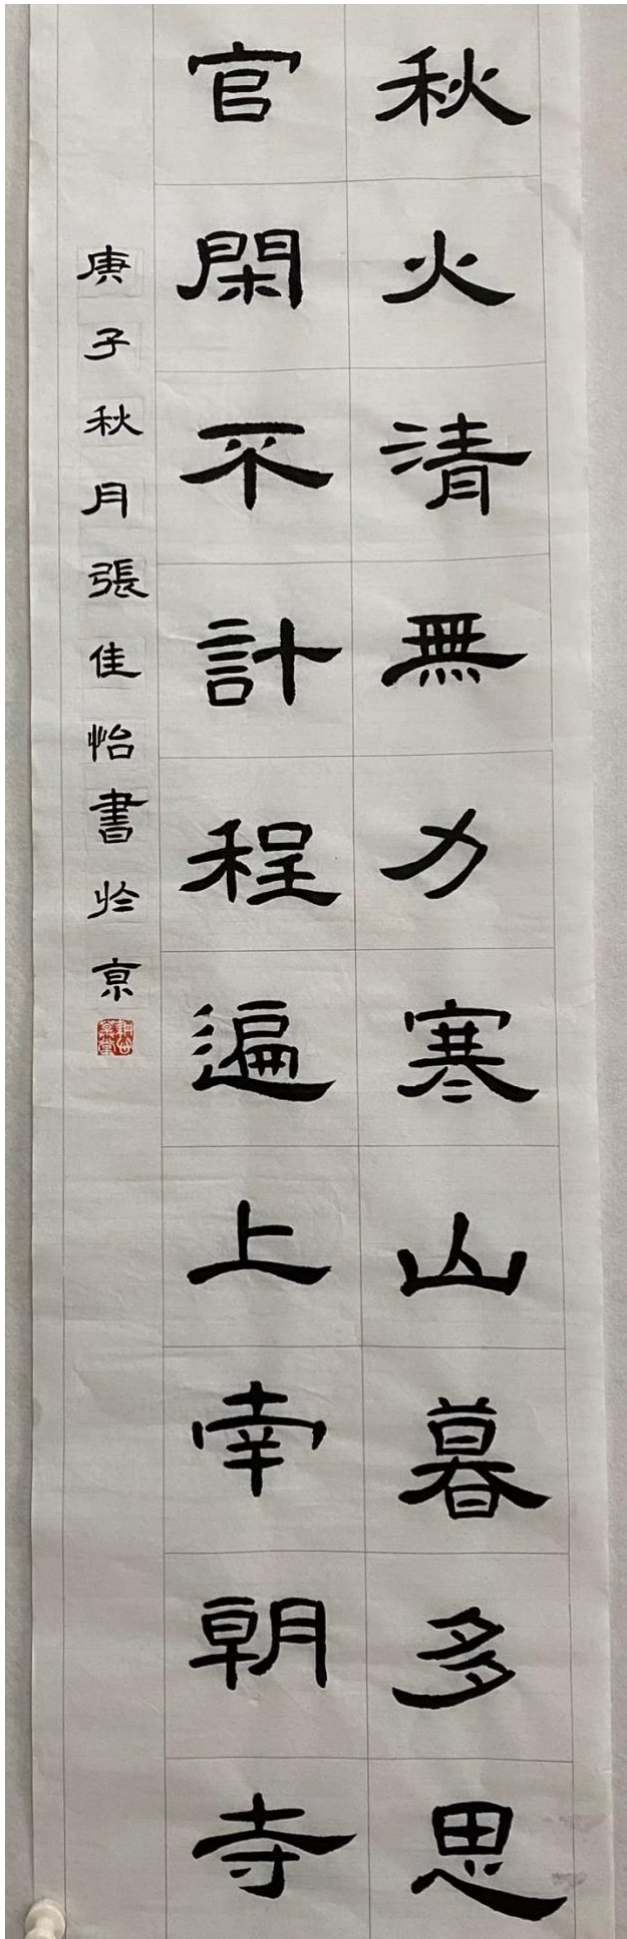 秋火清無力寒山暮多思
官閑不計程遍上南朝寺
庚子秋月張佳怡書於京